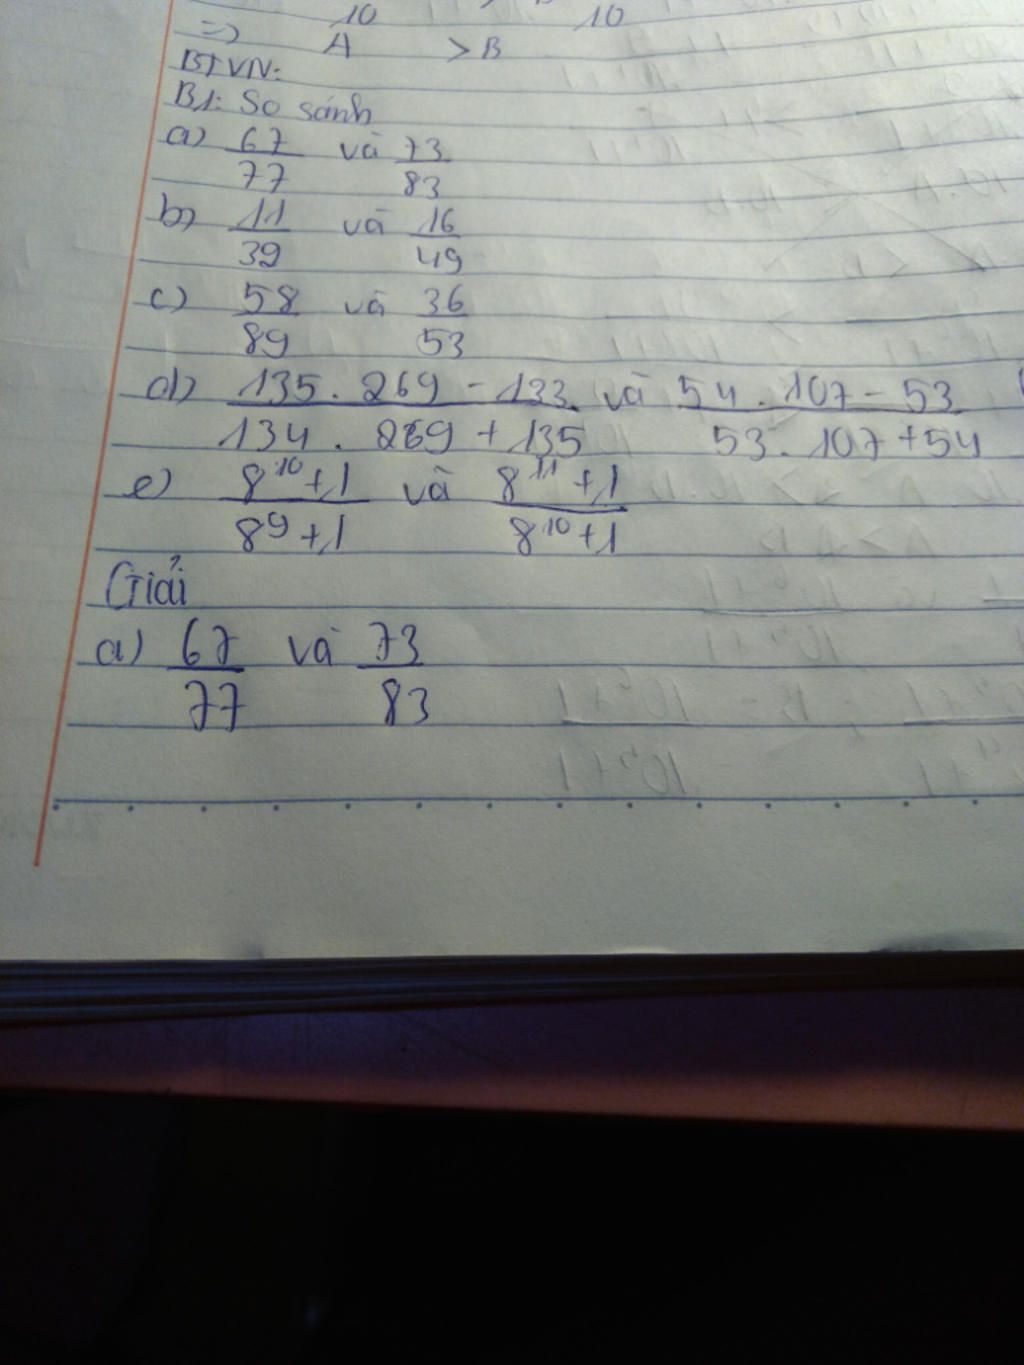 10 10
=> A > B
BTVN:
B1: So sánh
a) 67/77 và 73/83
b) 11/39 và 16/49
c) 58/89 và 36/53
d) 135 . 269 - 133 / 134 . 269 + 135 và 54 . 107 - 53 / 53 . 107 + 54
e) 8¹⁰ + 1 / 8⁹ + 1 và 8¹¹ + 1 / 8¹⁰ + 1
Giải
a) 67/77 và 73/83